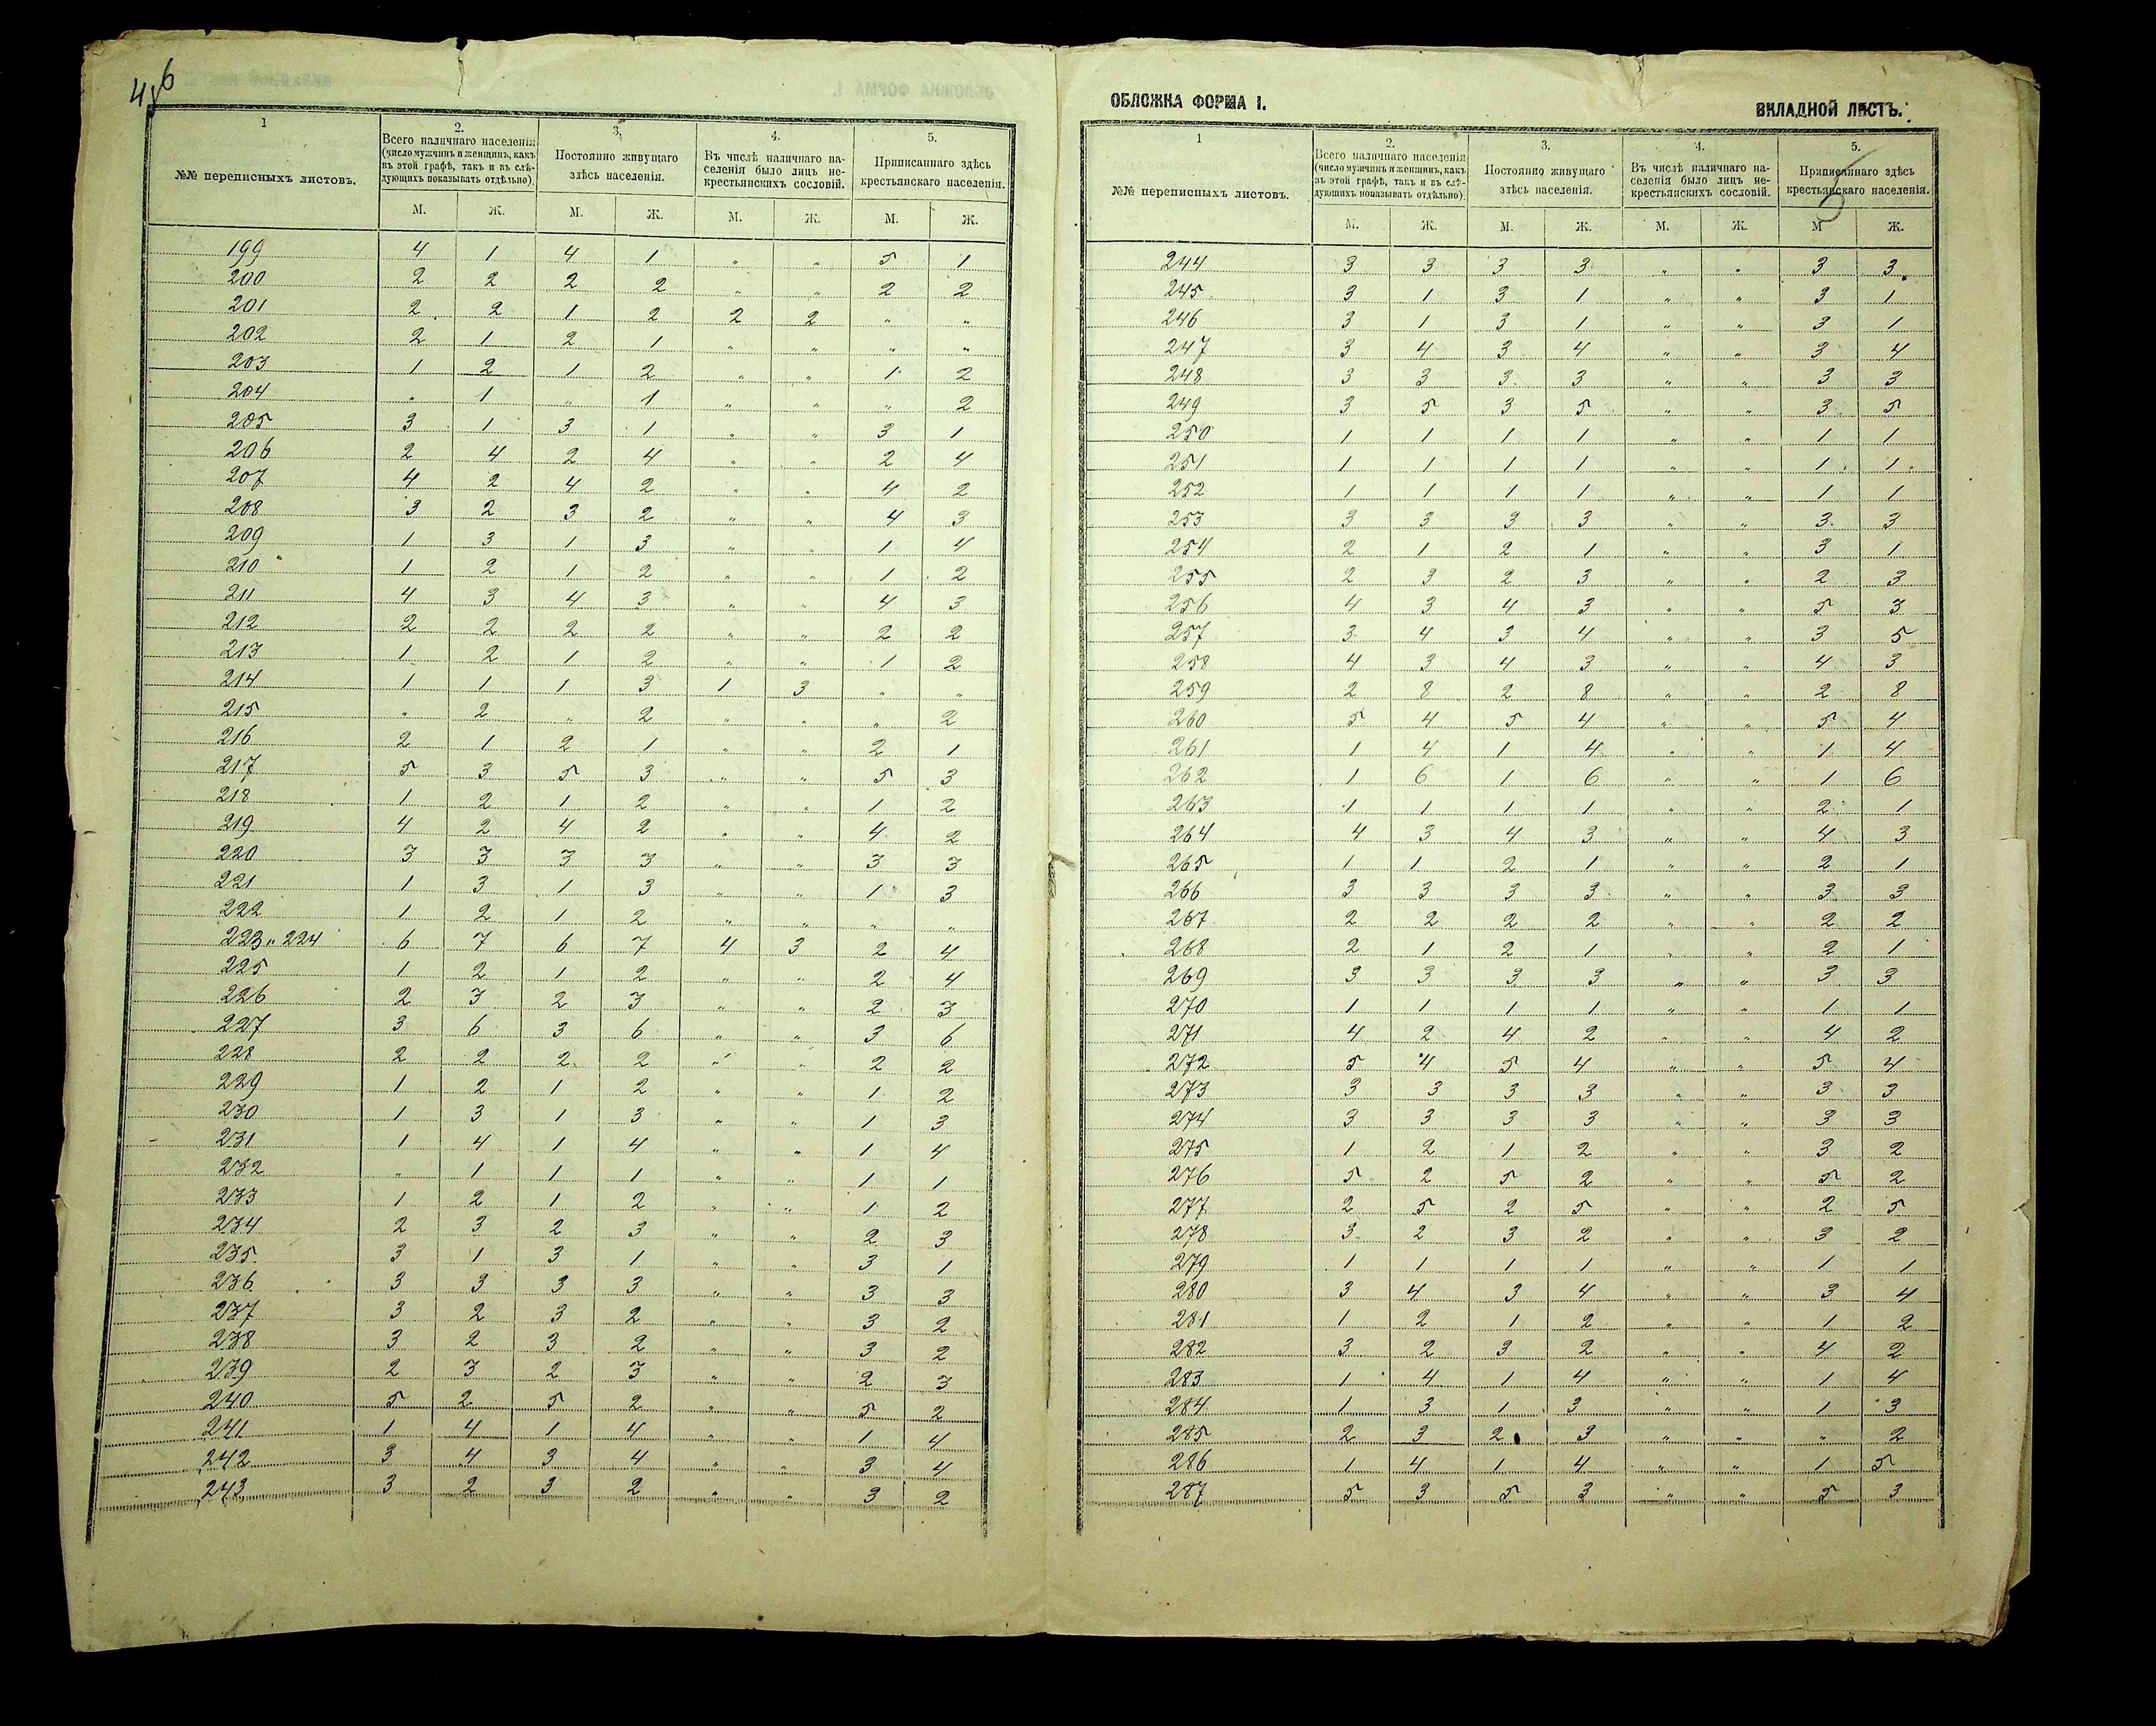 4 об
1
2.
3.
4.
5.
№№ переписныхъ листовъ.
Всего наличнаго населенія (число мужчинъ и женщинъ, какъ въ этой графѣ, такъ и въ слѣдующихъ показывать отдѣльно).
Постоянно живущаго здѣсь населенія.
Въ числѣ наличнаго населенія было лицъ некрестьянскихъ сословій.
Приписаннаго здѣсь крестьянскаго населенія.
М. Ж. М. Ж. М. Ж. М. Ж.
199 4 1 4 1 „ „ 5 1
200 2 2 2 2 „ „ 2 2
201 2 2 1 2 2 2 „ „
202 2 1 2 1 „ „ „ „
203 1 2 1 2 „ „ 1 2
204 „ 1 „ 1 „ „ „ 2
205 3 1 3 1 „ „ 3 1
206 2 4 2 4 „ „ 2 4
207 4 2 4 2 „ „ 4 2
208 3 2 3 2 „ „ 4 3
209 1 3 1 3 „ „ 1 4
210 1 2 1 2 „ „ 1 2
211 4 3 4 3 „ „ 4 3
212 2 2 2 2 „ „ 2 2
213 1 2 1 2 „ „ 1 2
214 1 1 1 3 1 3 „ „
215 „ 2 „ 2 „ „ „ 2
216 2 1 2 1 „ „ 2 1
217 5 3 5 3 „ „ 5 3
218 1 2 1 2 „ „ 1 2
219 4 2 4 2 „ „ 4 2
220 3 3 3 3 „ „ 3 3
221 1 3 1 3 „ „ 1 3
222 1 2 1 2 „ „ „ „
223 и 224 6 7 6 7 4 3 2 4
225 1 2 1 2 „ „ 2 4
226 2 3 2 3 „ „ 2 3
227 3 6 3 6 „ „ 3 6
228 2 2 2 2 „ „ 2 2
229 1 2 1 2 „ „ 1 2
230 1 3 1 3 „ „ 1 3
231 1 4 1 4 „ „ 1 4
232 „ 1 1 1 „ „ 1 1
233 1 2 1 2 „ „ 1 2
234 2 3 2 3 „ „ 2 3
235 3 1 3 1 „ „ 3 1
236 3 3 3 3 „ „ 3 3
237 3 2 3 2 „ „ 3 2
238 3 2 3 2 „ „ 3 2
239 2 3 2 3 „ „ 2 3
240 5 2 5 2 „ „ 5 2
241 1 4 1 4 „ „ 1 4
242 3 4 3 4 „ „ 3 4
243 3 2 3 2 „ „ 3 2
ОБЛОЖКА ФОРМА I.
ВКЛАДНОЙ ЛИСТЪ.
5
1
2.
3.
4.
5.
№№ переписныхъ листовъ.
Всего наличнаго населенія (число мужчинъ и женщинъ, какъ въ этой графѣ, такъ и въ слѣдующихъ показывать отдѣльно).
Постоянно живущаго здѣсь населенія.
Въ числѣ наличнаго населенія было лицъ некрестьянскихъ сословій.
Приписаннаго здѣсь крестьянскаго населенія.
М. Ж. М. Ж. М. Ж. М Ж.
244 3 3 3 3 „ „ 3 3
245 3 1 3 1 „ „ 3 1
246 3 1 3 1 „ „ 3 1
247 3 4 3 4 „ „ 3 4
248 3 3 3 3 „ „ 3 3
249 3 5 3 5 „ „ 3 5
250 1 1 1 1 „ „ 1 1
251 1 1 1 1 „ „ 1 1
252 1 1 1 1 „ „ 1 1
253 3 3 3 3 „ „ 3 3
254 2 1 2 1 „ „ 3 1
255 2 3 2 3 „ „ 2 3
256 4 3 4 3 „ „ 5 3
257 3 4 3 4 „ „ 3 5
258 4 3 4 3 „ „ 4 3
259 2 8 2 8 „ „ 2 8
260 5 4 5 4 „ „ 5 4
261 1 4 1 4 „ „ 1 4
262 1 6 1 6 „ „ 1 6
263 1 1 1 1 „ „ 2 1
264 4 3 4 3 „ „ 4 3
265 1 1 2 1 „ „ 2 1
266 3 3 3 3 „ „ 3 3
267 2 2 2 2 „ „ 2 2
268 2 1 2 1 „ „ 2 1
269 3 3 3 3 „ „ 3 3
270 1 1 1 1 „ „ 1 1
271 4 2 4 2 „ „ 4 2
272 5 4 5 4 „ „ 5 4
273 3 3 3 3 „ „ 3 3
274 3 3 3 3 „ „ 3 3
275 1 2 1 2 „ „ 3 2
276 5 2 5 2 „ „ 5 2
277 2 5 2 5 „ „ 2 5
278 3 2 3 2 „ „ 3 2
279 1 1 1 1 „ „ 1 1
280 3 4 3 4 „ „ 3 4
281 1 2 1 2 „ „ 1 2
282 3 2 3 2 „ „ 4 2
283 1 4 1 4 „ „ 1 4
284 1 3 1 3 „ „ 1 3
285 2 3 2 3 „ „ „ 2
286 1 4 1 4 „ „ 1 5
287 5 3 5 3 „ „ 5 3